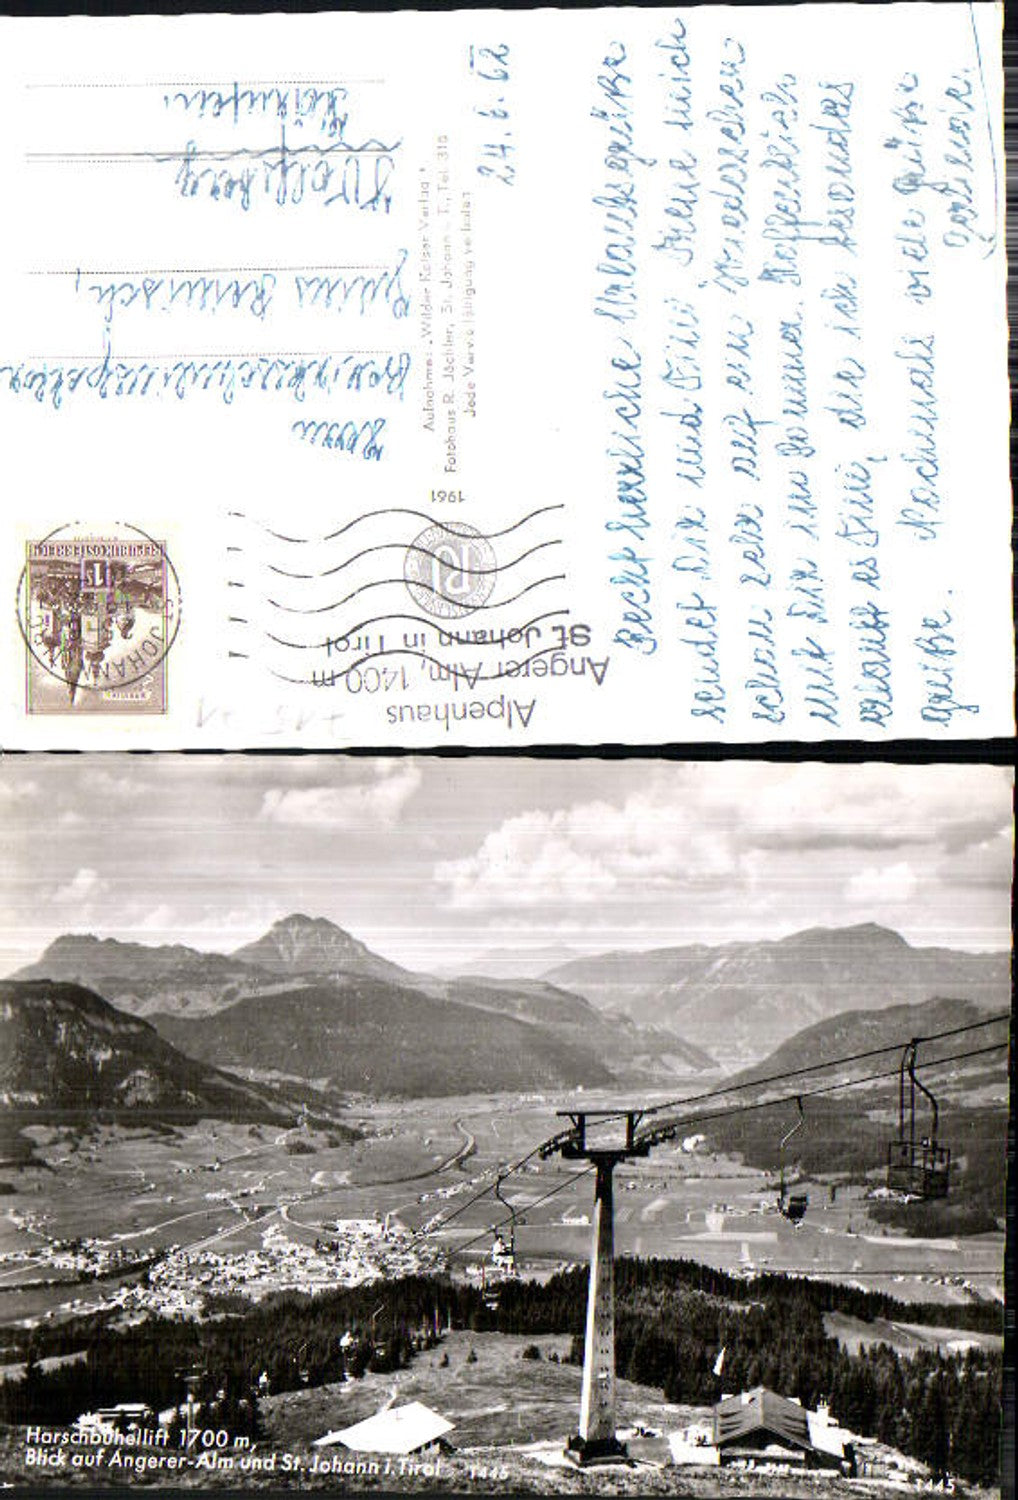 24.6.62
Recht herrliche Urlaubsgrüße
sendet Dir und Fini. Freue mich
schon sehr auf ein Wiedersehen
mit Dir im Sommer. Hoffentlich
erlaubt es Fini, die ich besonders
grüße. Nochmals viele Grüße
Herrn
Bezirksschulinspektor
Julius
Wolfsberg
Kärnten.
Aufnahme: "Wilder Kaiser Verlag"
Fotohaus R. Jöchler, St. Johann i. T., Tel. 310
Jede Vervielfältigung verboten
1961
REPUBLIK ÖSTERREICH
ST. JOHANN
Alpenhaus
Angerer Alm, 1400 m
St. Johann in Tirol
Harschbühellift 1700 m,
Blick auf Angerer-Alm und St. Johann i. Tirol 1445
1445